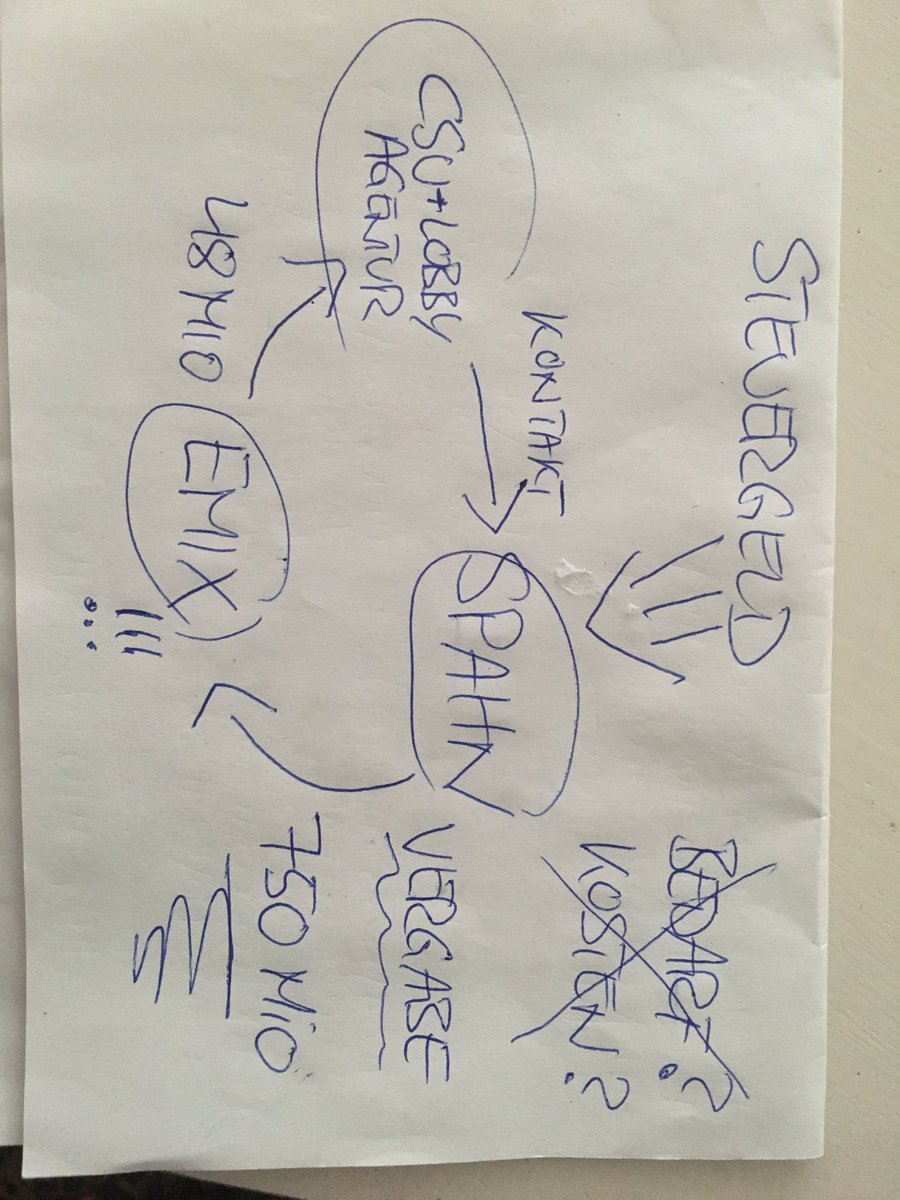 STEUERGELD
BEDARF?
KOSTEN?
KONTAKT
CSU+LOBBY
AGENTUR
SPAHN
VERGABE
48 MIO
EMIX
!!!
750 MIO